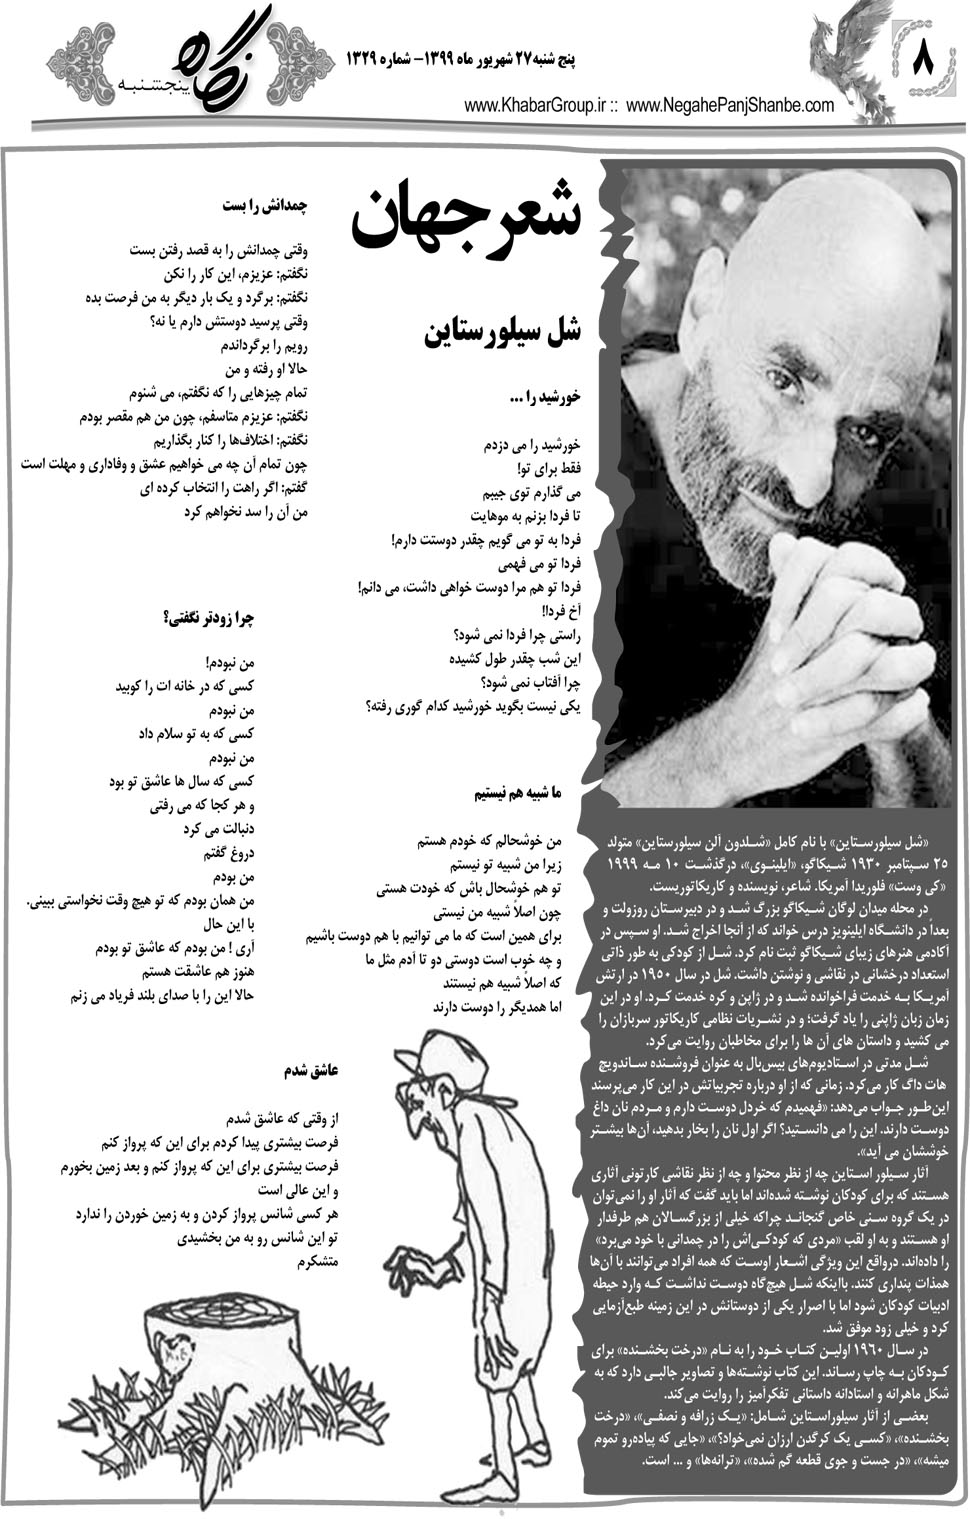 ۸
پنج شنبه۲۷ شهریور ماه ۱۳۹۹- شماره ۱۳۲۹
نگاه
پنجشنبه
www.KhabarGroup.ir :: www.NegahePanjShanbe.com
شعر جهان
شل سیلورستاین
خورشید را ...
خورشید را می دزدم
فقط برای تو!
می گذارم توی جیبم
تا فردا بزنم به موهایت
فردا به تو می گویم چقدر دوستت دارم!
فردا تو می فهمی
فردا تو هم مرا دوست خواهی داشت، می دانم!
آخ فردا!
راستی چرا فردا نمی شود؟
این شب چقدر طول کشیده
چرا آفتاب نمی شود؟
یکی نیست بگوید خورشید کدام گوری رفته؟
ما شبیه هم نیستیم
من خوشحالم که خودم هستم
زیرا من شبیه تو نیستم
تو هم خوشحال باش که خودت هستی
چون اصلاً شبیه من نیستی
برای همین است که ما می توانیم با هم دوست باشیم
و چه خوب است دوستی دو تا آدم مثل ما
که اصلاً شبیه هم نیستند
اما همدیگر را دوست دارند
چمدانش را بست
وقتی چمدانش را به قصد رفتن بست
نگفتم: عزیزم، این کار را نکن
نگفتم: برگرد و یک بار دیگر به من فرصت بده
وقتی پرسید دوستش دارم یا نه؟
رویم را برگرداندم
حالا او رفته و من
تمام چیزهایی را که نگفتم، می شنوم
نگفتم: عزیزم متاسفم، چون من هم مقصر بودم
نگفتم: اختلاف‌ها را کنار بگذاریم
چون تمام آن چه می خواهیم عشق و وفاداری و مهلت است
گفتم: اگر راهت را انتخاب کرده ای
من آن را سد نخواهم کرد
چرا زودتر نگفتی؟
من نبودم!
کسی که در خانه ات را کوبید
من نبودم
کسی که به تو سلام داد
من نبودم
کسی که سال ها عاشق تو بود
و هر کجا که می رفتی
دنبالت می کرد
دروغ گفتم
من بودم
من همان بودم که تو هیچ وقت نخواستی ببینی.
با این حال
آری ! من بودم که عاشق تو بودم
هنوز هم عاشقت هستم
حالا این را با صدای بلند فریاد می زنم
عاشق شدم
از وقتی که عاشق شدم
فرصت بیشتری پیدا کردم برای این که پرواز کنم
فرصت بیشتری برای این که پرواز کنم و بعد زمین بخورم
و این عالی است
هر کسی شانس پرواز کردن و به زمین خوردن را ندارد
تو این شانس رو به من بخشیدی
متشکرم
«شل سیلورستاین» با نام کامل «شلدون آلن سیلورستاین» متولد
۲۵ سپتامبر ۱۹۳۰ شیکاگو، «ایلینوی»، درگذشت ۱۰ مه ۱۹۹۹
«کی وست» فلوریدا آمریکا. شاعر، نویسنده و کاریکاتوریست.
در محله میدان لوگان شیکاگو بزرگ شد و در دبیرستان روزولت و
بعداً در دانشگاه ایلینویز درس خواند که از آنجا اخراج شد. او سپس در
آکادمی هنرهای زیبای شیکاگو ثبت نام کرد. شل از کودکی به طور ذاتی
استعداد درخشانی در نقاشی و نوشتن داشت. شل در سال ۱۹۵۰ در ارتش
آمریکا به خدمت فراخوانده شد و در ژاپن و کره خدمت کرد. او در این
زمان زبان ژاپنی را یاد گرفت؛ و در نشریات نظامی کاریکاتور سربازان را
می کشید و داستان های آن ها را برای مخاطبان روایت می‌کرد.
شل مدتی در استادیوم‌های بیس‌بال به عنوان فروشنده ساندویچ
هات داگ کار می‌کرد. زمانی که از او درباره تجربیاتش در این کار می‌پرسند
این‌طور جواب می‌دهد: «فهمیدم که خردل دوست دارم و مردم نان داغ
دوست دارند. این را می دانستید؟ اگر اول نان را بخار بدهید، آن‌ها بیشتر
خوششان می آید».
آثار سیلور استاین چه از نظر محتوا و چه از نظر نقاشی کارتونی آثاری
هستند که برای کودکان نوشته شده‌اند اما باید گفت که آثار او را نمی‌توان
در یک گروه سنی خاص گنجاند چراکه خیلی از بزرگسالان هم طرفدار
او هستند و به او لقب «مردی که کودکی‌اش را در چمدانی با خود می‌برد»
را داده‌اند. درواقع این ویژگی اشعار اوست که همه افراد می‌توانند با آن‌ها
همذات پنداری کنند. بااینکه شل هیچ‌گاه دوست نداشت که وارد حیطه
ادبیات کودکان شود اما با اصرار یکی از دوستانش در این زمینه طبع‌آزمایی
کرد و خیلی زود موفق شد.
در سال ۱۹۶۰ اولین کتاب خود را به نام «درخت بخشنده» برای
کودکان به چاپ رساند. این کتاب نوشته‌ها و تصاویر جالبی دارد که به
شکل ماهرانه و استادانه داستانی تفکرآمیز را روایت می‌کند.
بعضی از آثار سیلوراستاین شامل: «یک زرافه و نصفی»، «درخت
بخشنده»، «کسی یک کرگدن ارزان نمی‌خواد؟»، «جایی که پیاده‌رو تموم
میشه»، «در جست و جوی قطعه گم شده»، «ترانه‌ها» و ... است.